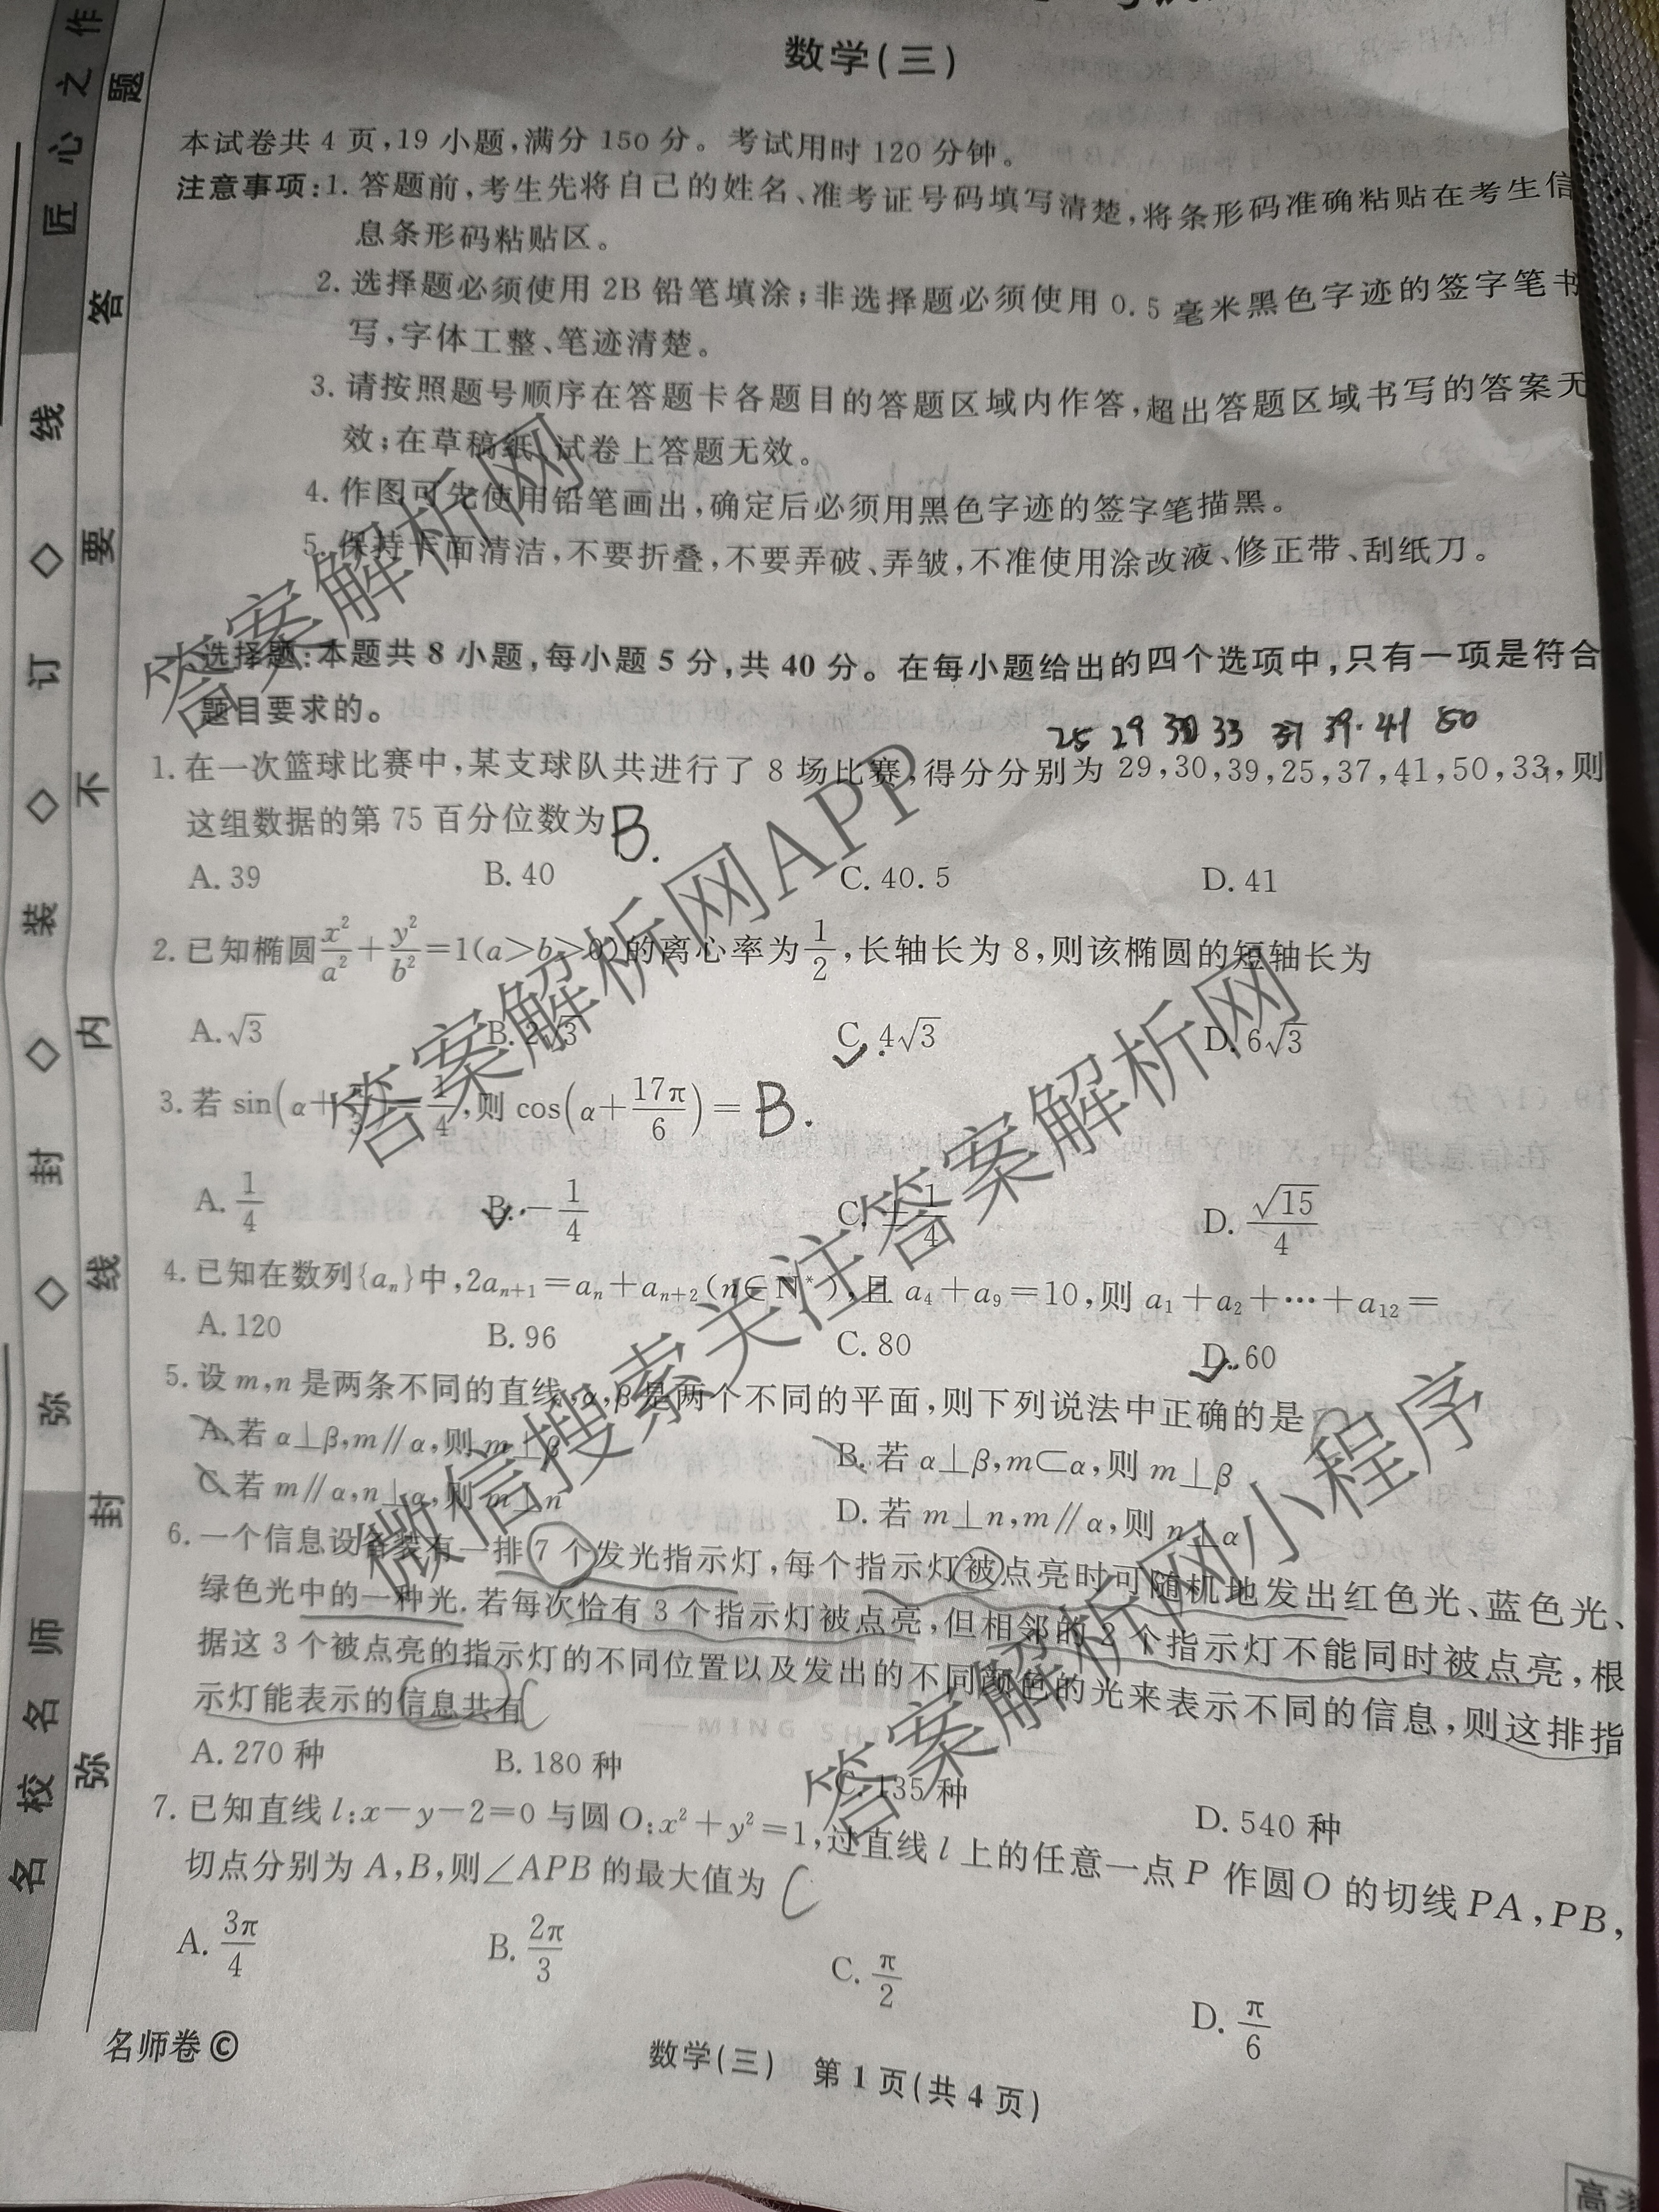 数学(三)
本试卷共 4 页,19 小题,满分 150 分。考试用时 120 分钟。
注意事项:1. 答题前,考生先将自己的姓名、准考证号码填写清楚,将条形码准确粘贴在考生信
息条形码粘贴区。
2. 选择题必须使用 2B 铅笔填涂;非选择题必须使用 0.5 毫米黑色字迹的签字笔书
写,字体工整、笔迹清楚。
3. 请按照题号顺序在答题卡各题目的答题区域内作答,超出答题区域书写的答案无
效;在草稿纸、试卷上答题无效。
4. 作图可先使用铅笔画出,确定后必须用黑色字迹的签字笔描黑。
5. 保持卡面清洁,不要折叠,不要弄破、弄皱,不准使用涂改液、修正带、刮纸刀。
选择题:本题共 8 小题,每小题 5 分,共 40 分。在每小题给出的四个选项中,只有一项是符合
题目要求的。
25 29 30 33 37 39. 41 50
1. 在一次篮球比赛中,某支球队共进行了 8 场比赛,得分分别为 29,30,39,25,37,41,50,33,则
这组数据的第 75 百分位数为 B.
A. 39 B. 40 C. 40.5 D. 41
2. 已知椭圆 x²/a² + y²/b² =1(a>b>0)的离心率为 1/2,长轴长为 8,则该椭圆的短轴长为
A. √3 B. 2√3 C. 4√3 D. 6√3
3. 若 sin(α+π/3)=1/4,则 cos(α+17π/6)= B.
A. 1/4 B. −1/4 C. ±1/4 D. √15/4
4. 已知在数列{aₙ}中,2aₙ₊₁=aₙ+aₙ₊₂(n∈N*),且 a₄+a₉=10,则 a₁+a₂+⋯+a₁₂=
A. 120 B. 96 C. 80 D. 60
5. 设 m,n 是两条不同的直线,α,β 是两个不同的平面,则下列说法中正确的是
A. 若 α⊥β,m∥α,则 m⊥β B. 若 α⊥β,m⊂α,则 m⊥β
C. 若 m∥α,n⊥α,则 m⊥n D. 若 m⊥n,m∥α,则 n⊥α
6. 一个信息设备装有一排 7 个发光指示灯,每个指示灯被点亮时可随机地发出红色光、蓝色光、
绿色光中的一种光. 若每次恰有 3 个指示灯被点亮,但相邻的 2 个指示灯不能同时被点亮,根
据这 3 个被点亮的指示灯的不同位置以及发出的不同颜色的光来表示不同的信息,则这排指
示灯能表示的信息共有 C
A. 270 种 B. 180 种 C. 135 种 D. 540 种
7. 已知直线 l:x−y−2=0 与圆 O:x²+y²=1,过直线 l 上的任意一点 P 作圆 O 的切线 PA,PB,
切点分别为 A,B,则∠APB 的最大值为 C
A. 3π/4 B. 2π/3 C. π/2 D. π/6
名师卷©
数学(三) 第 1 页(共 4 页)
名校名师 匠心之作
弥 ◇ 封 ◇ 装 ◇ 订 ◇ 线
弥 封 线 内 不 要 答 题
答案解析网
答案解析网APP
微信搜索关注答案解析网
答案解析网小程序